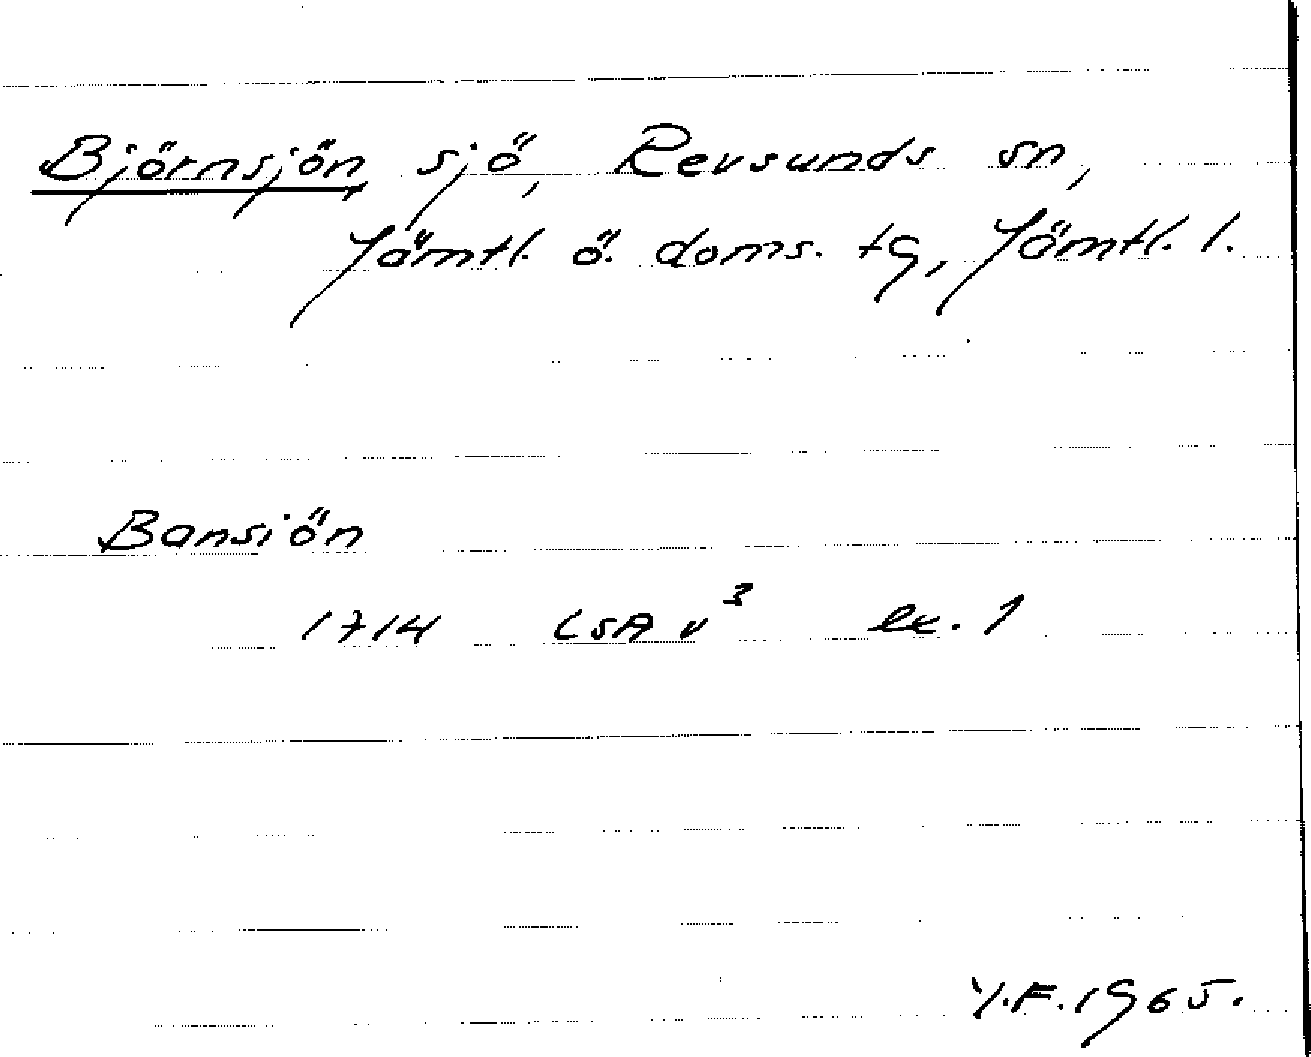 Björnsjön sjö, Revsunds sn,
Jämtl. ö. doms. tg, Jämtl. l.
Bansiön
1714 LSA v³ ex. 1
Y.F. 1965.